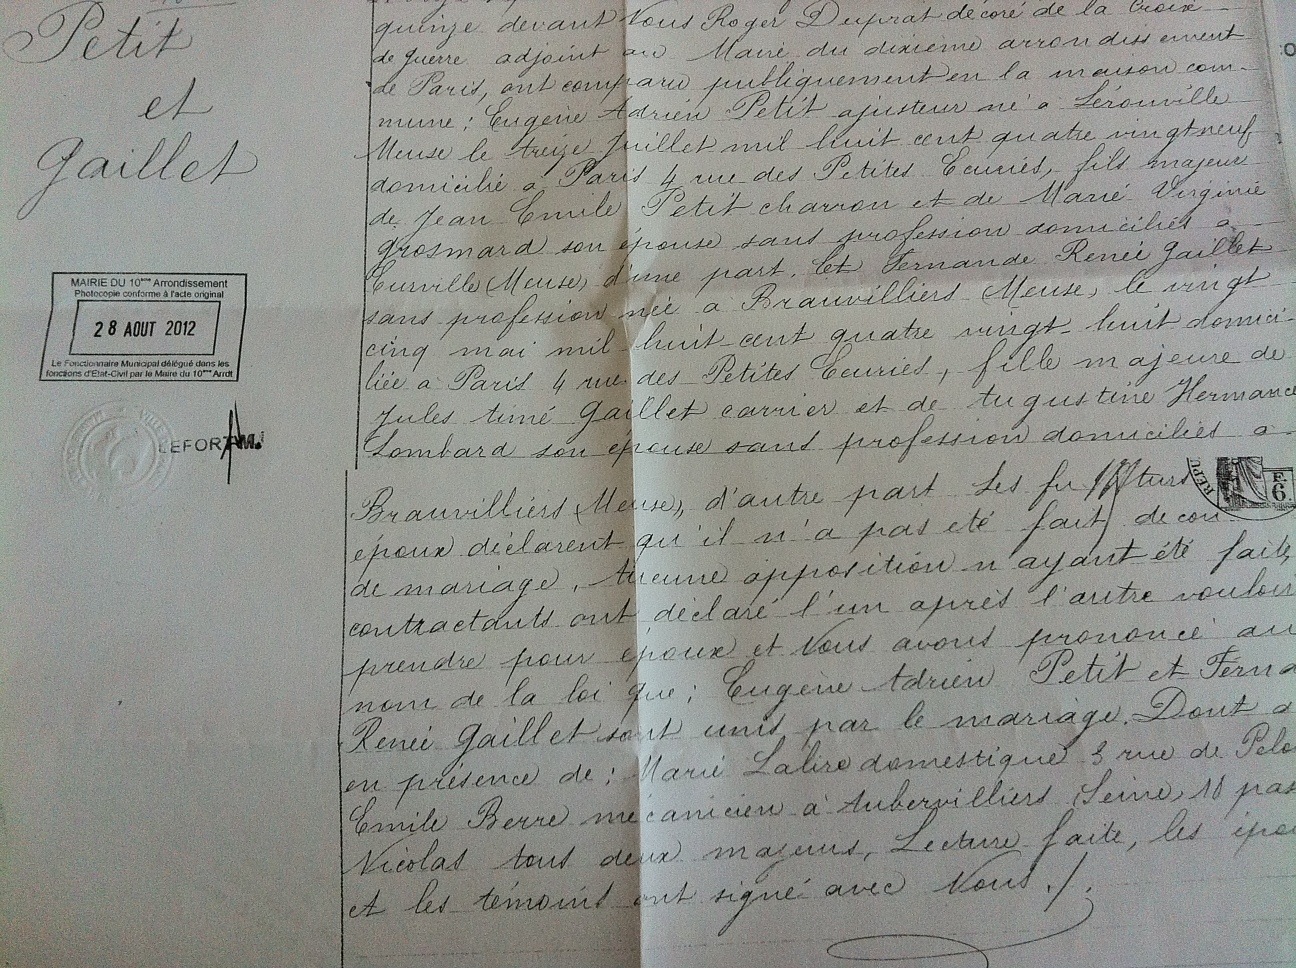 Petit
et
Gaillet
MAIRIE DU 10ème Arrondissement
Photocopie conforme à l'acte original
28 AOUT 2012
Le Fonctionnaire Municipal délégué dans les
fonctions d'Etat-Civil par le Maire du 10ème Arrdt
LEFORT
quinze devant Nous Roger Duprat décoré de la Croix
de guerre adjoint au Maire du dixième arrondissement
de Paris, ont comparu publiquement en la maison com-
mune : Eugène Adrien Petit ajusteur né à Lérouville
Meuse le treize Juillet mil huit cent quatre vingt neuf
domicilié à Paris 4 rue des Petites Ecuries, fils majeur
de Jean Emile Petit charron et de Marie Virginie
Grosmard son épouse sans profession domiciliés à
Eurville (Meuse) d'une part Et Fernande Renée Gaillet
sans profession née à Brauvilliers (Meuse, le vingt
cinq mai mil huit cent quatre vingt huit domici-
liée à Paris 4 rue des Petites Ecuries, fille majeure de
Jules Gaillet carrier et de Augustine Hermance
Lombard son épouse sans profession domiciliés à
Brauvilliers (Meuse), d'autre part Les futurs
époux déclarent qu'il n'a pas été fait de con
de mariage, Aucune opposition n'ayant été faite,
contractants ont déclaré l'un après l'autre vouloir
prendre pour époux et Nous avons prononcé au
nom de la loi que : Eugène Adrien Petit et Ferna
Renée Gaillet sont unis par le mariage. Dont a
en présence de : Marie Lalire domestique 3 rue de
Emile Berre mécanicien à Aubervilliers (Seine, 10 pas
Nicolas tous deux majeurs, Lecture faite, les épou
et les témoins ont signé avec Nous ./.
RÉPU
E
6